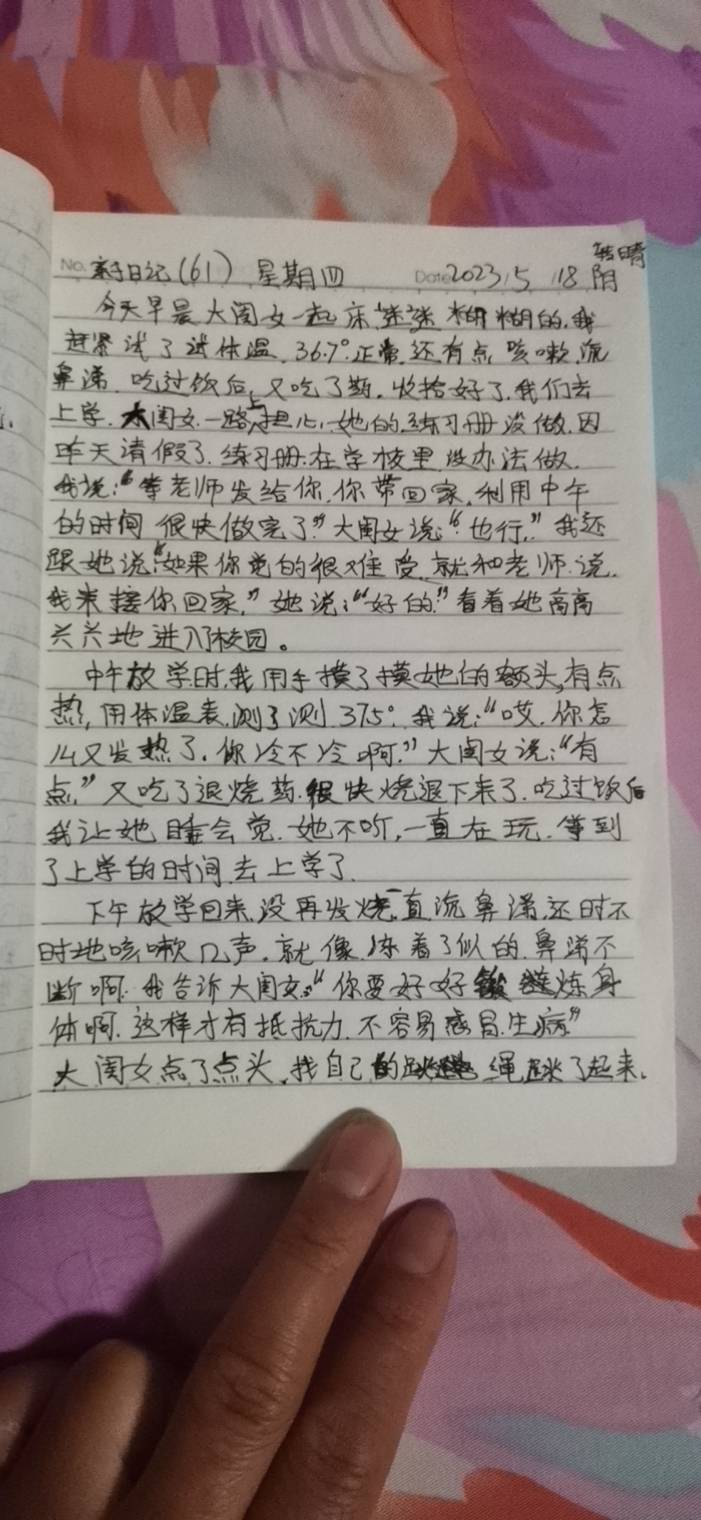 No. 亲子日记(61) 星期四 Date 2023.5.18 阴转晴
今天早晨大闺女一起床迷迷糊糊的.我
赶紧试了试体温.36.7°正常.还有点咳嗽.流
鼻涕.吃过饭后,又吃了药.收拾好了.我们去
上学.大闺女一路上担心.她的练习册没做.因
昨天请假了.练习册.在学校里.没办法做.
我说:“等老师发给你.你带回家.利用中午
的时间 很快做完了”大闺女说:“也行.”我还
跟她说:“如果你觉的很难受.就和老师.说.
我来接你回家.”她说:“好的”看着她高高
兴兴地进入了校园。
中午放学时,我用手摸了摸她的额头,有点
热,用体温表.测了测.37.5°.我说:“哎.你怎
么又发热了.你冷不冷啊.”大闺女说:“有
点.”又吃了退烧药.很快烧退下来了.吃过饭后
我让她睡会觉.她不听,一直在玩.等到
了上学的时间.去上学了.
下午放学回来.没再发烧.一直流鼻涕.还时不
时地咳嗽几声.就像冻着了似的.鼻涕不
断啊.我告诉大闺女:“你要好好锻炼身
体啊.这样才有抵抗力.不容易感冒.生病”
大闺女点了点头.找自己的跳绳跳了起来.